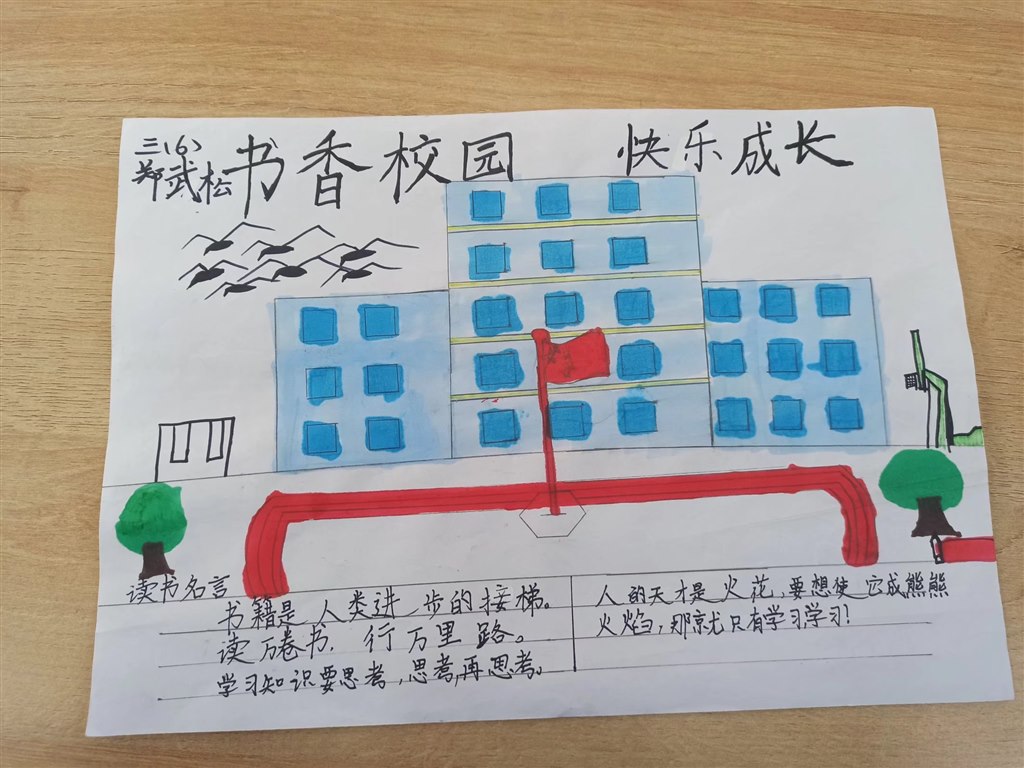 三(6)
郑武松
书香校园 快乐成长
读书名言
书籍是人类进步的接梯。
读万卷书,行万里路。
学习知识要思考,思考,再思考。
人的天才是火花,要想使它成熊熊
火焰,那就只有学习学习!